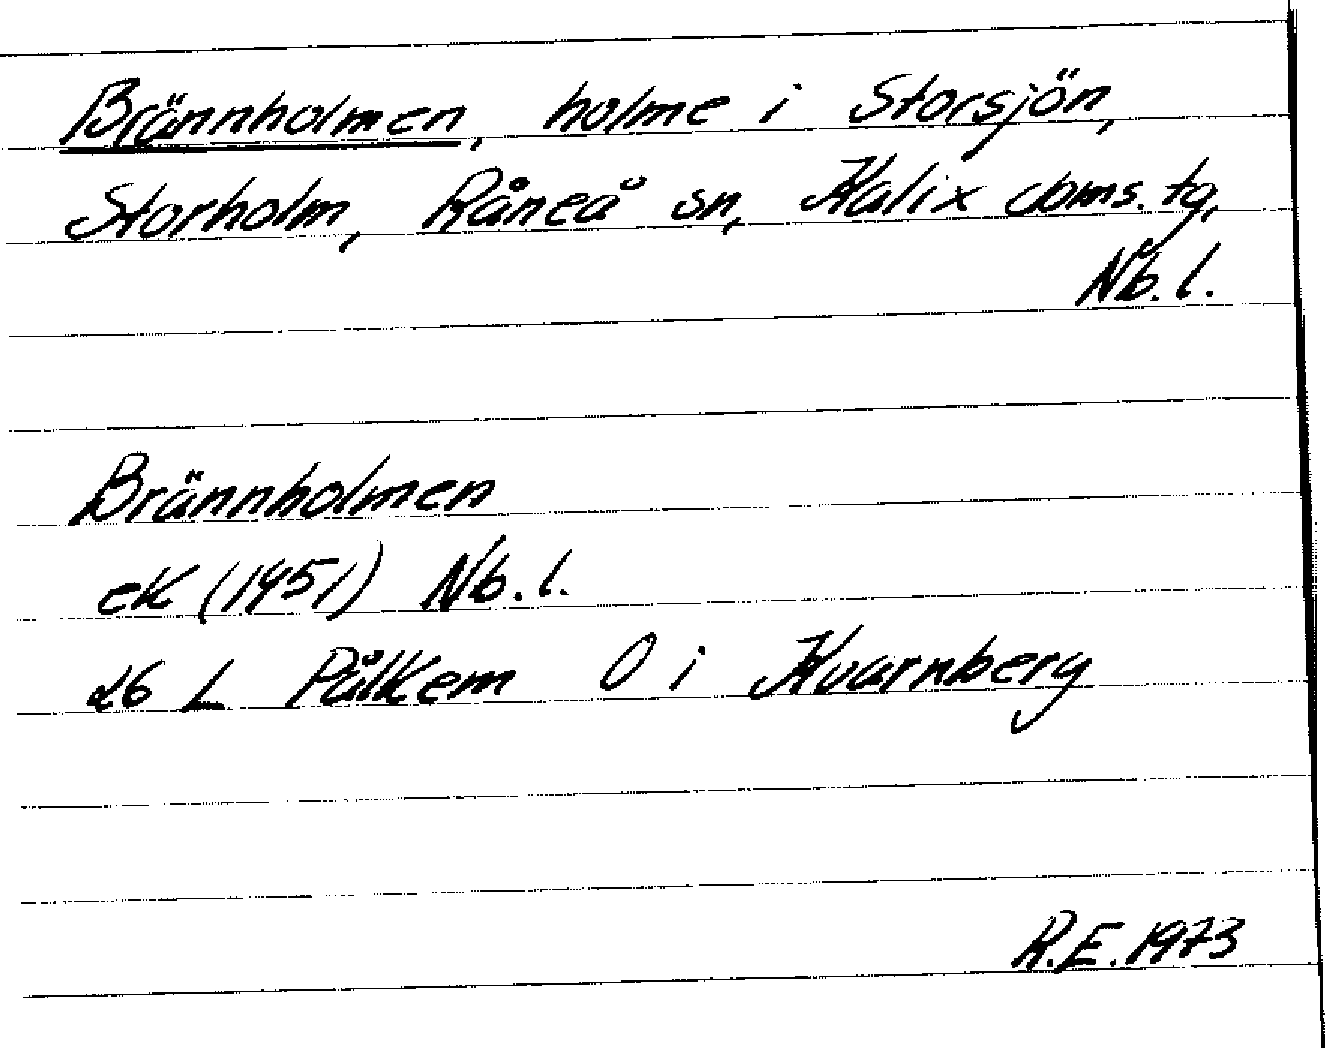 Brännholmen, holme i Storsjön,
Storholm, Råneå sn, Kalix doms. tg,
Nb. l.
Brännholmen
eK (1951) Nb. l.
26 L Pålkem O i Kvarnberg
R.E. 1973